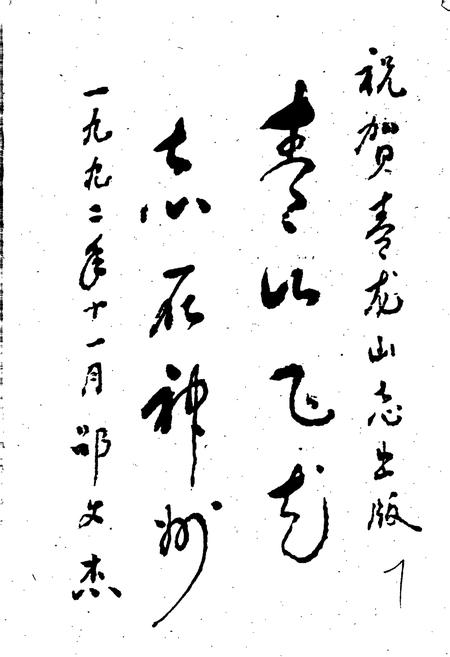 祝贺青龙山志出版
青山飞龙
志在神州
一九九二年十一月邵文杰